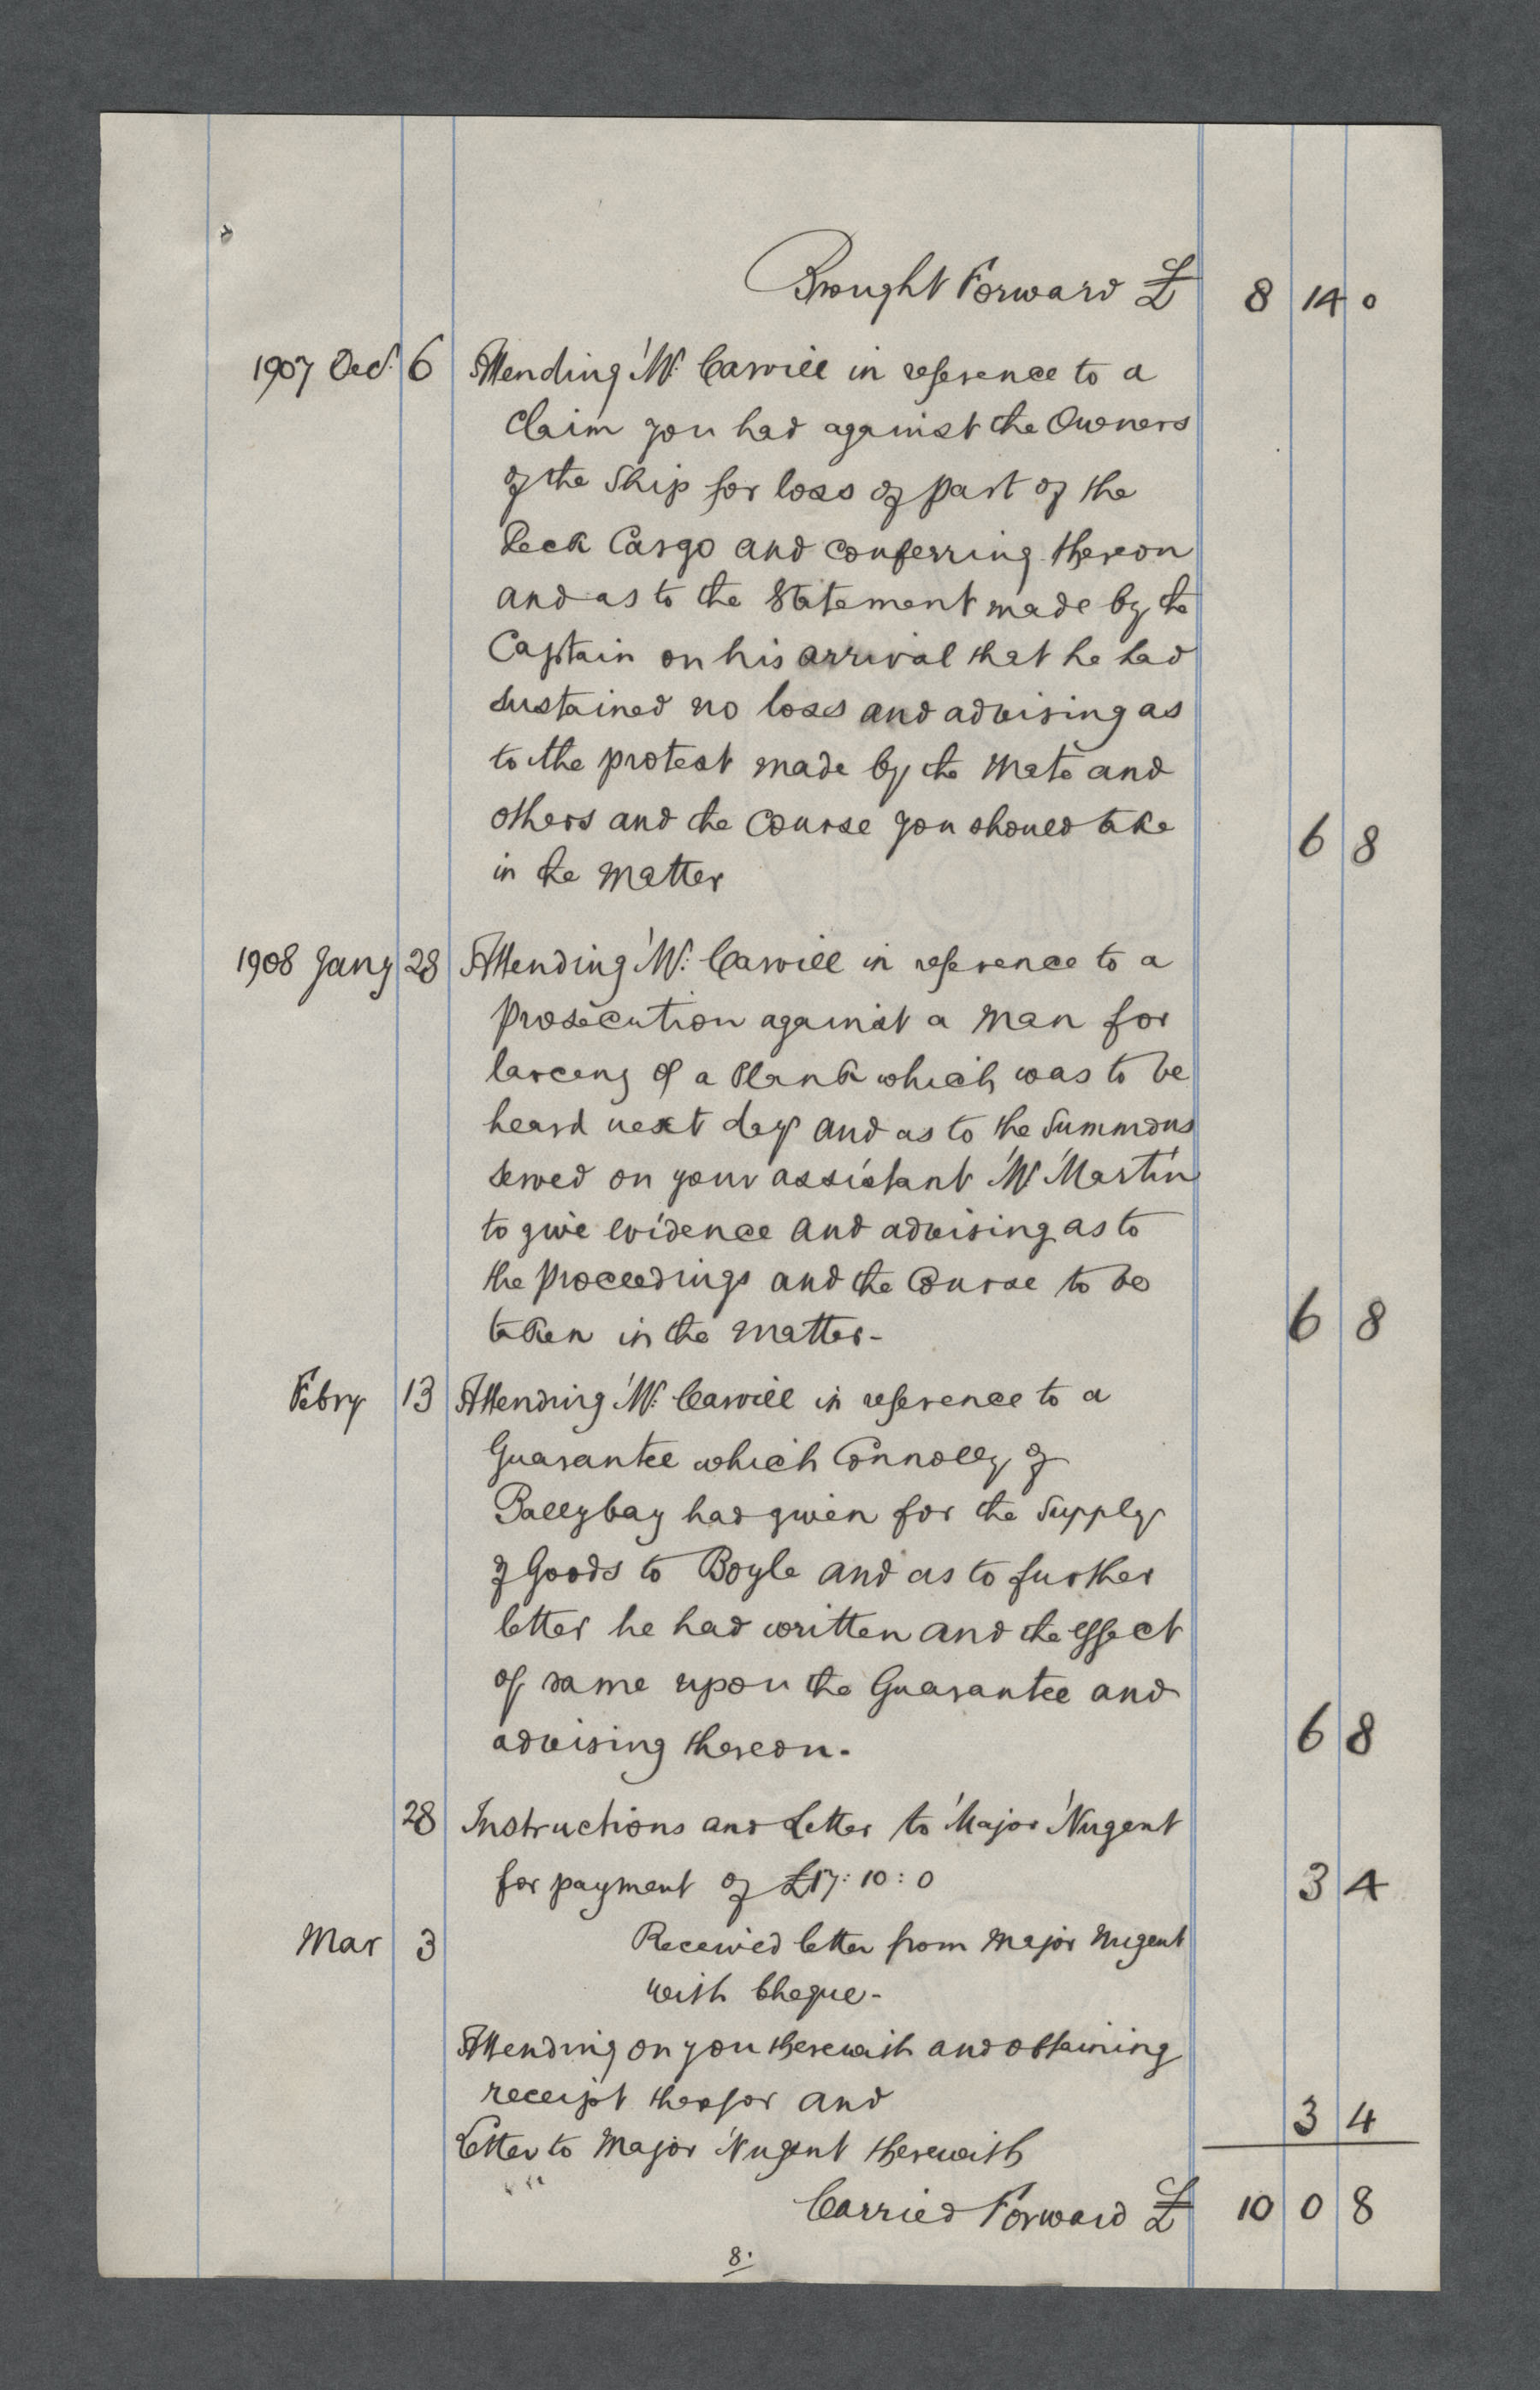 Brought Forward £ 8 14 0
1907 Oct. 6 Attending Mr. Carvill in reference to a
Claim you had against the Owners
of the Ship for loss of part of the
Deck Cargo and conferring thereon
and as to the Statement made by the
Captain on his arrival that he had
sustained no loss and advising as
to the protest made by the Mate and
others and the Course you should take 6 8
in the matter
1908 Jany 28 Attending Mr. Carvill in reference to a
prosecution against a man for
larceny of a Plank which was to be
heard next day and as to the Summons
served on your assistant Mr Martin
to give evidence and advising as to
the proceedings and the Course to be
taken in the matter- 6 8
Febry 13 Attending Mr. Carvill in reference to a
Guarantee which Connolly of
Ballybay had given for the Supply
of Goods to Boyle and as to further
letter he had written and the effect
of same upon the Guarantee and
advising thereon. 6 8
28 Instructions and Letter to Major Nugent
for payment of £17:10:0 3 4
Mar 3 Received letter from Major Nugent
with Cheque-
Attending on you therewith and obtaining
receipt therefor and 3 4
Letter to Major Nugent therewith
Carried Forward £ 10 0 8
8.